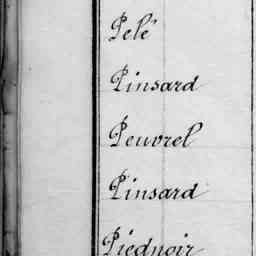 Pelé
Pinsard
Peuvrel
Pinsard
Piednoir